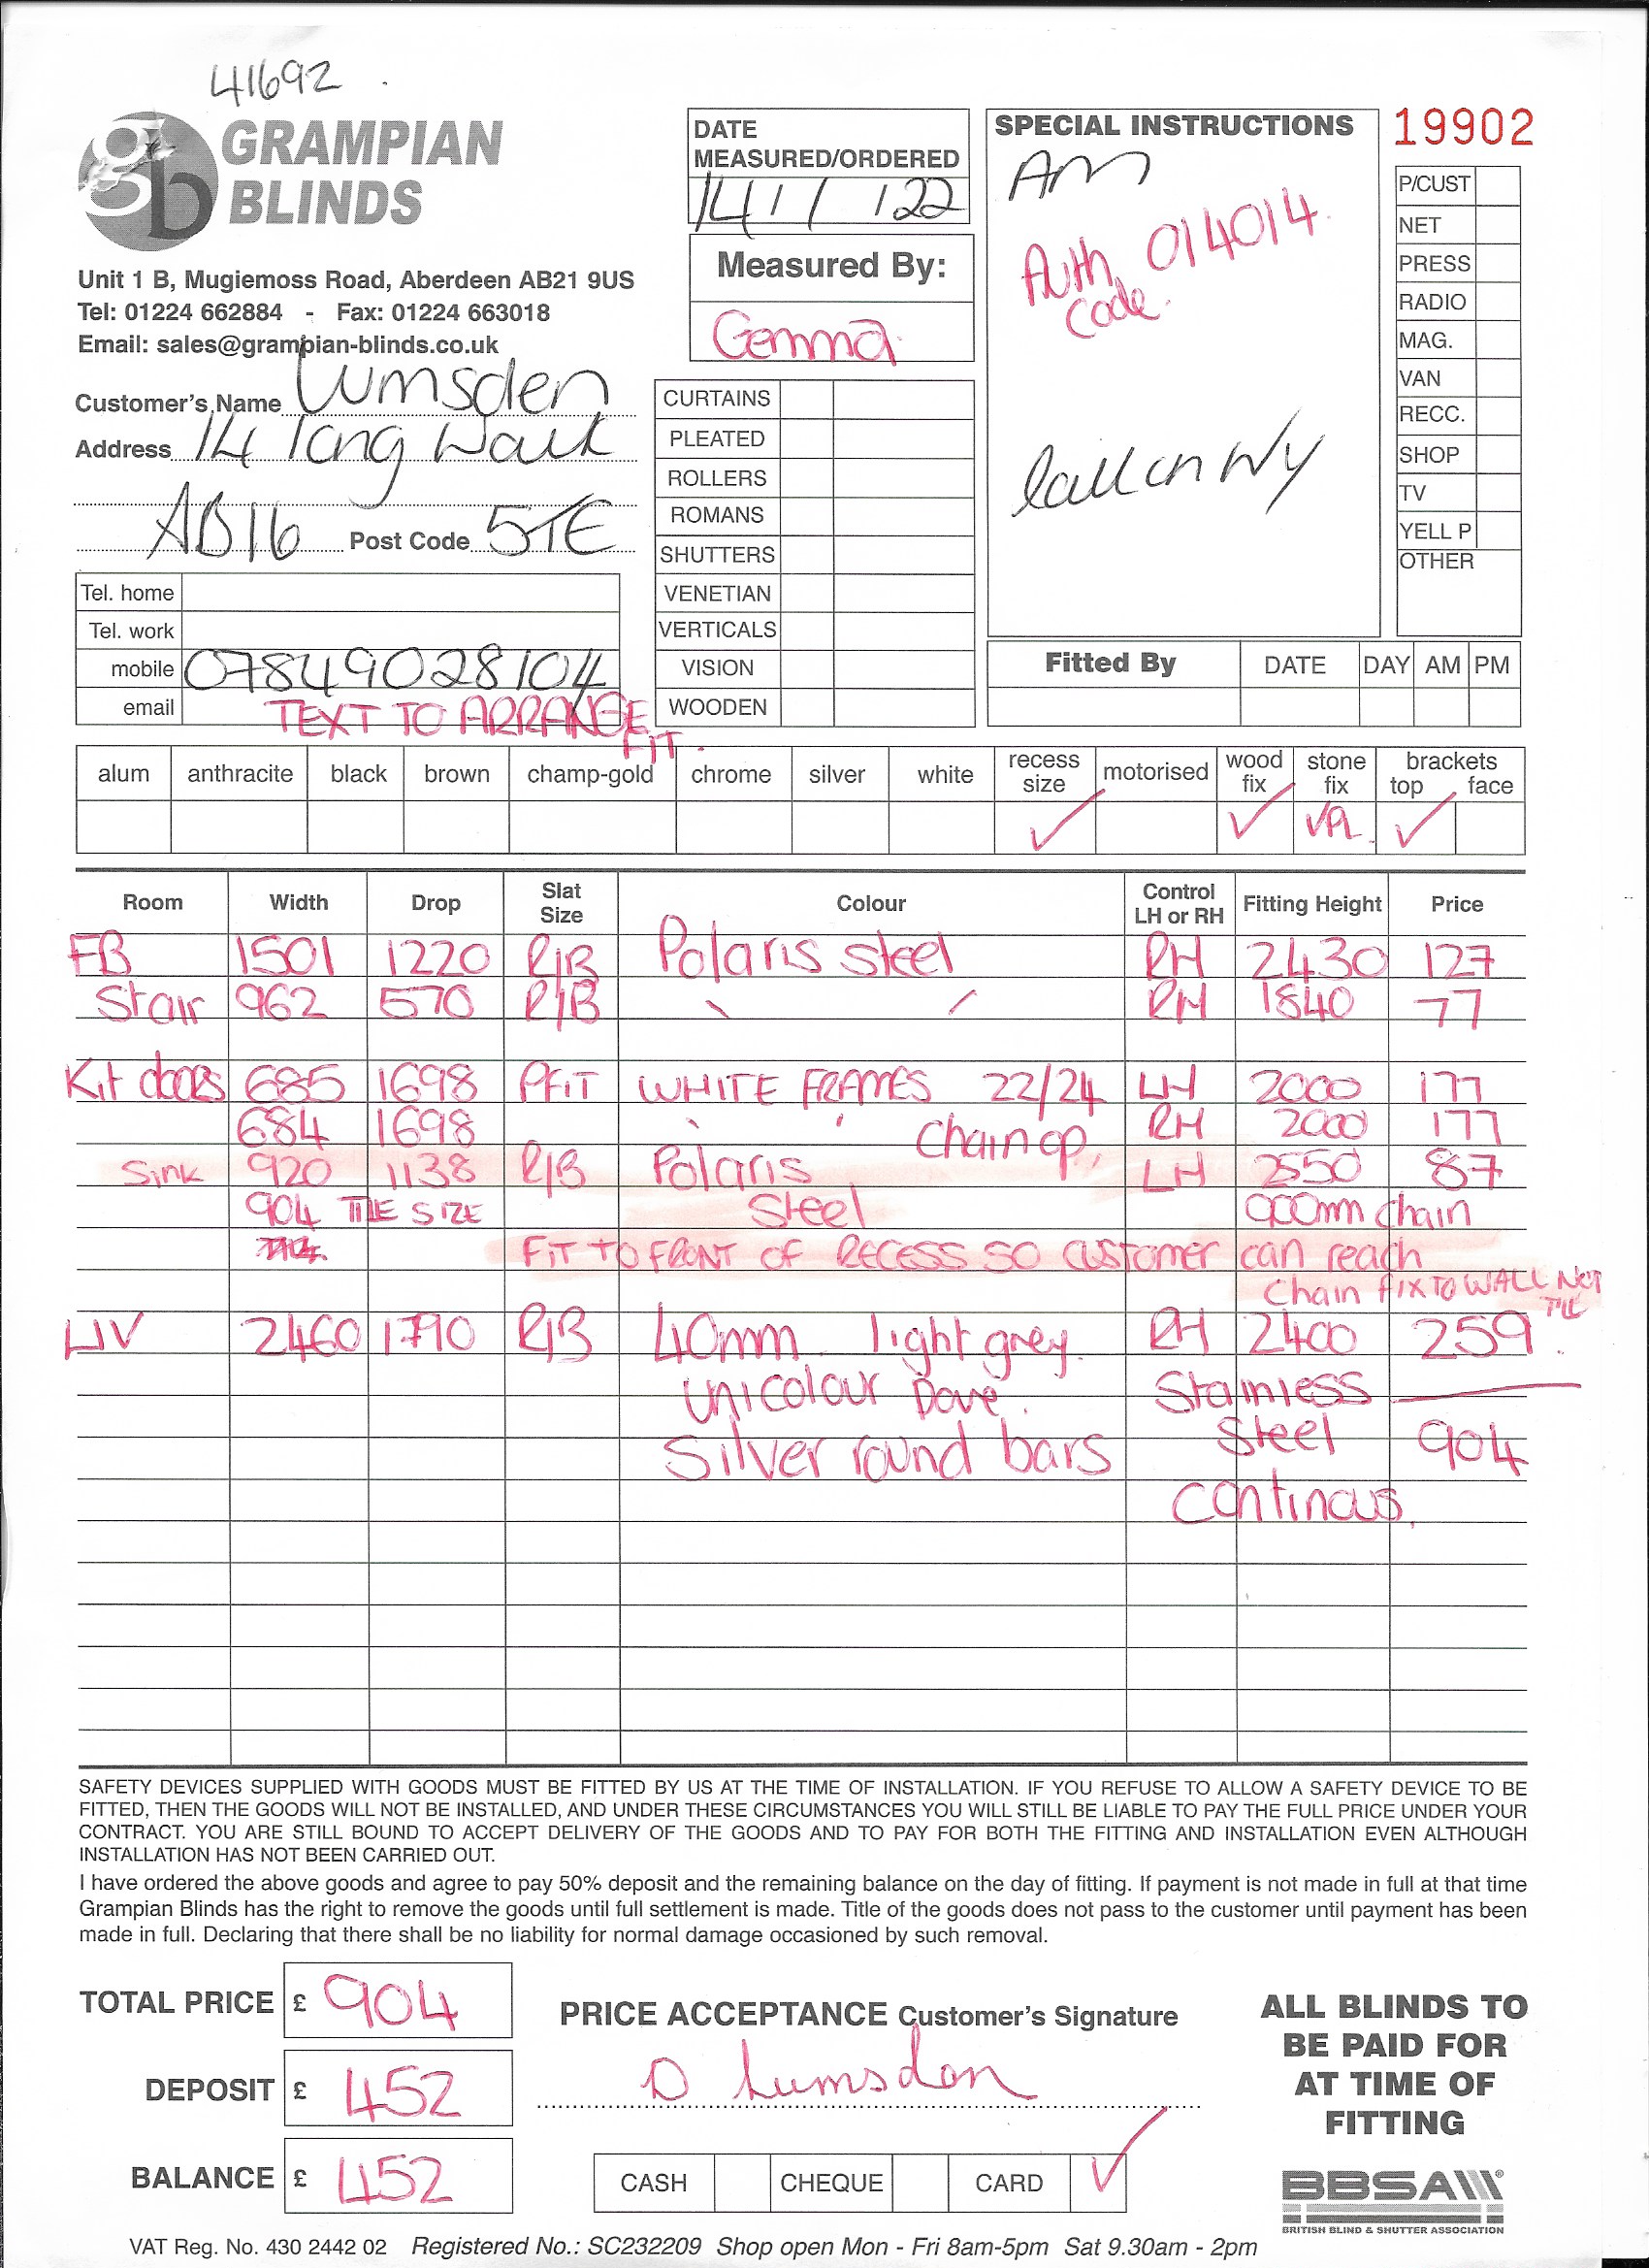 41692
GRAMPIAN
BLINDS
Unit 1 B, Mugiemoss Road, Aberdeen AB21 9US
Tel: 01224 662884 - Fax: 01224 663018
Email: sales@grampian-blinds.co.uk
Customer's Name Lumsden
Address 14 Lang Walk
AB16 Post Code 5TE
Tel. home
Tel. work
mobile 07849028104
email TEXT TO ARRANGE
FIT.
DATE
MEASURED/ORDERED
14/1/22
Measured By:
Gemma
CURTAINS
PLEATED
ROLLERS
ROMANS
SHUTTERS
VENETIAN
VERTICALS
VISION
WOODEN
SPECIAL INSTRUCTIONS
AM
Auth 014014
Code.
Call on Wy
19902
P/CUST
NET
PRESS
RADIO
MAG.
VAN
RECC.
SHOP
TV
YELL P
OTHER
Fitted By DATE DAY AM PM
alum anthracite black brown champ-gold chrome silver white recess size motorised wood fix stone fix brackets top face
✓ ✓ ✓ ✓
Room Width Drop Slat Size Colour Control LH or RH Fitting Height Price
FB 1501 1220 R/B Polaris steel RH 2430 127
Stair 962 570 R/B \ / RH 1840 77
Kit doors 685 1698 PFIT WHITE FRAMES 22/24 LH 2000 177
684 1698 ' ' Chain op, RH 2000 177
Sink 920 1138 R/B Polaris LH 2550 87
904 TILE SIZE Steel 900mm chain
FIT TO FRONT OF RECESS SO CUSTOMER can reach
Chain FIX TO WALL NOT
TILE
LIV 2460 1790 R/B 40mm light grey. RH 2400 259.
Unicolour Dove. Stainless
Silver round bars Steel 904
Continous.
SAFETY DEVICES SUPPLIED WITH GOODS MUST BE FITTED BY US AT THE TIME OF INSTALLATION. IF YOU REFUSE TO ALLOW A SAFETY DEVICE TO BE
FITTED, THEN THE GOODS WILL NOT BE INSTALLED, AND UNDER THESE CIRCUMSTANCES YOU WILL STILL BE LIABLE TO PAY THE FULL PRICE UNDER YOUR
CONTRACT. YOU ARE STILL BOUND TO ACCEPT DELIVERY OF THE GOODS AND TO PAY FOR BOTH THE FITTING AND INSTALLATION EVEN ALTHOUGH
INSTALLATION HAS NOT BEEN CARRIED OUT.
I have ordered the above goods and agree to pay 50% deposit and the remaining balance on the day of fitting. If payment is not made in full at that time
Grampian Blinds has the right to remove the goods until full settlement is made. Title of the goods does not pass to the customer until payment has been
made in full. Declaring that there shall be no liability for normal damage occasioned by such removal.
TOTAL PRICE £ 904
DEPOSIT £ 452
BALANCE £ 452
PRICE ACCEPTANCE Customer's Signature
D Lumsden
CASH CHEQUE CARD ✓
ALL BLINDS TO
BE PAID FOR
AT TIME OF
FITTING
BBSA
BRITISH BLIND & SHUTTER ASSOCIATION
VAT Reg. No. 430 2442 02 Registered No.: SC232209 Shop open Mon - Fri 8am-5pm Sat 9.30am - 2pm